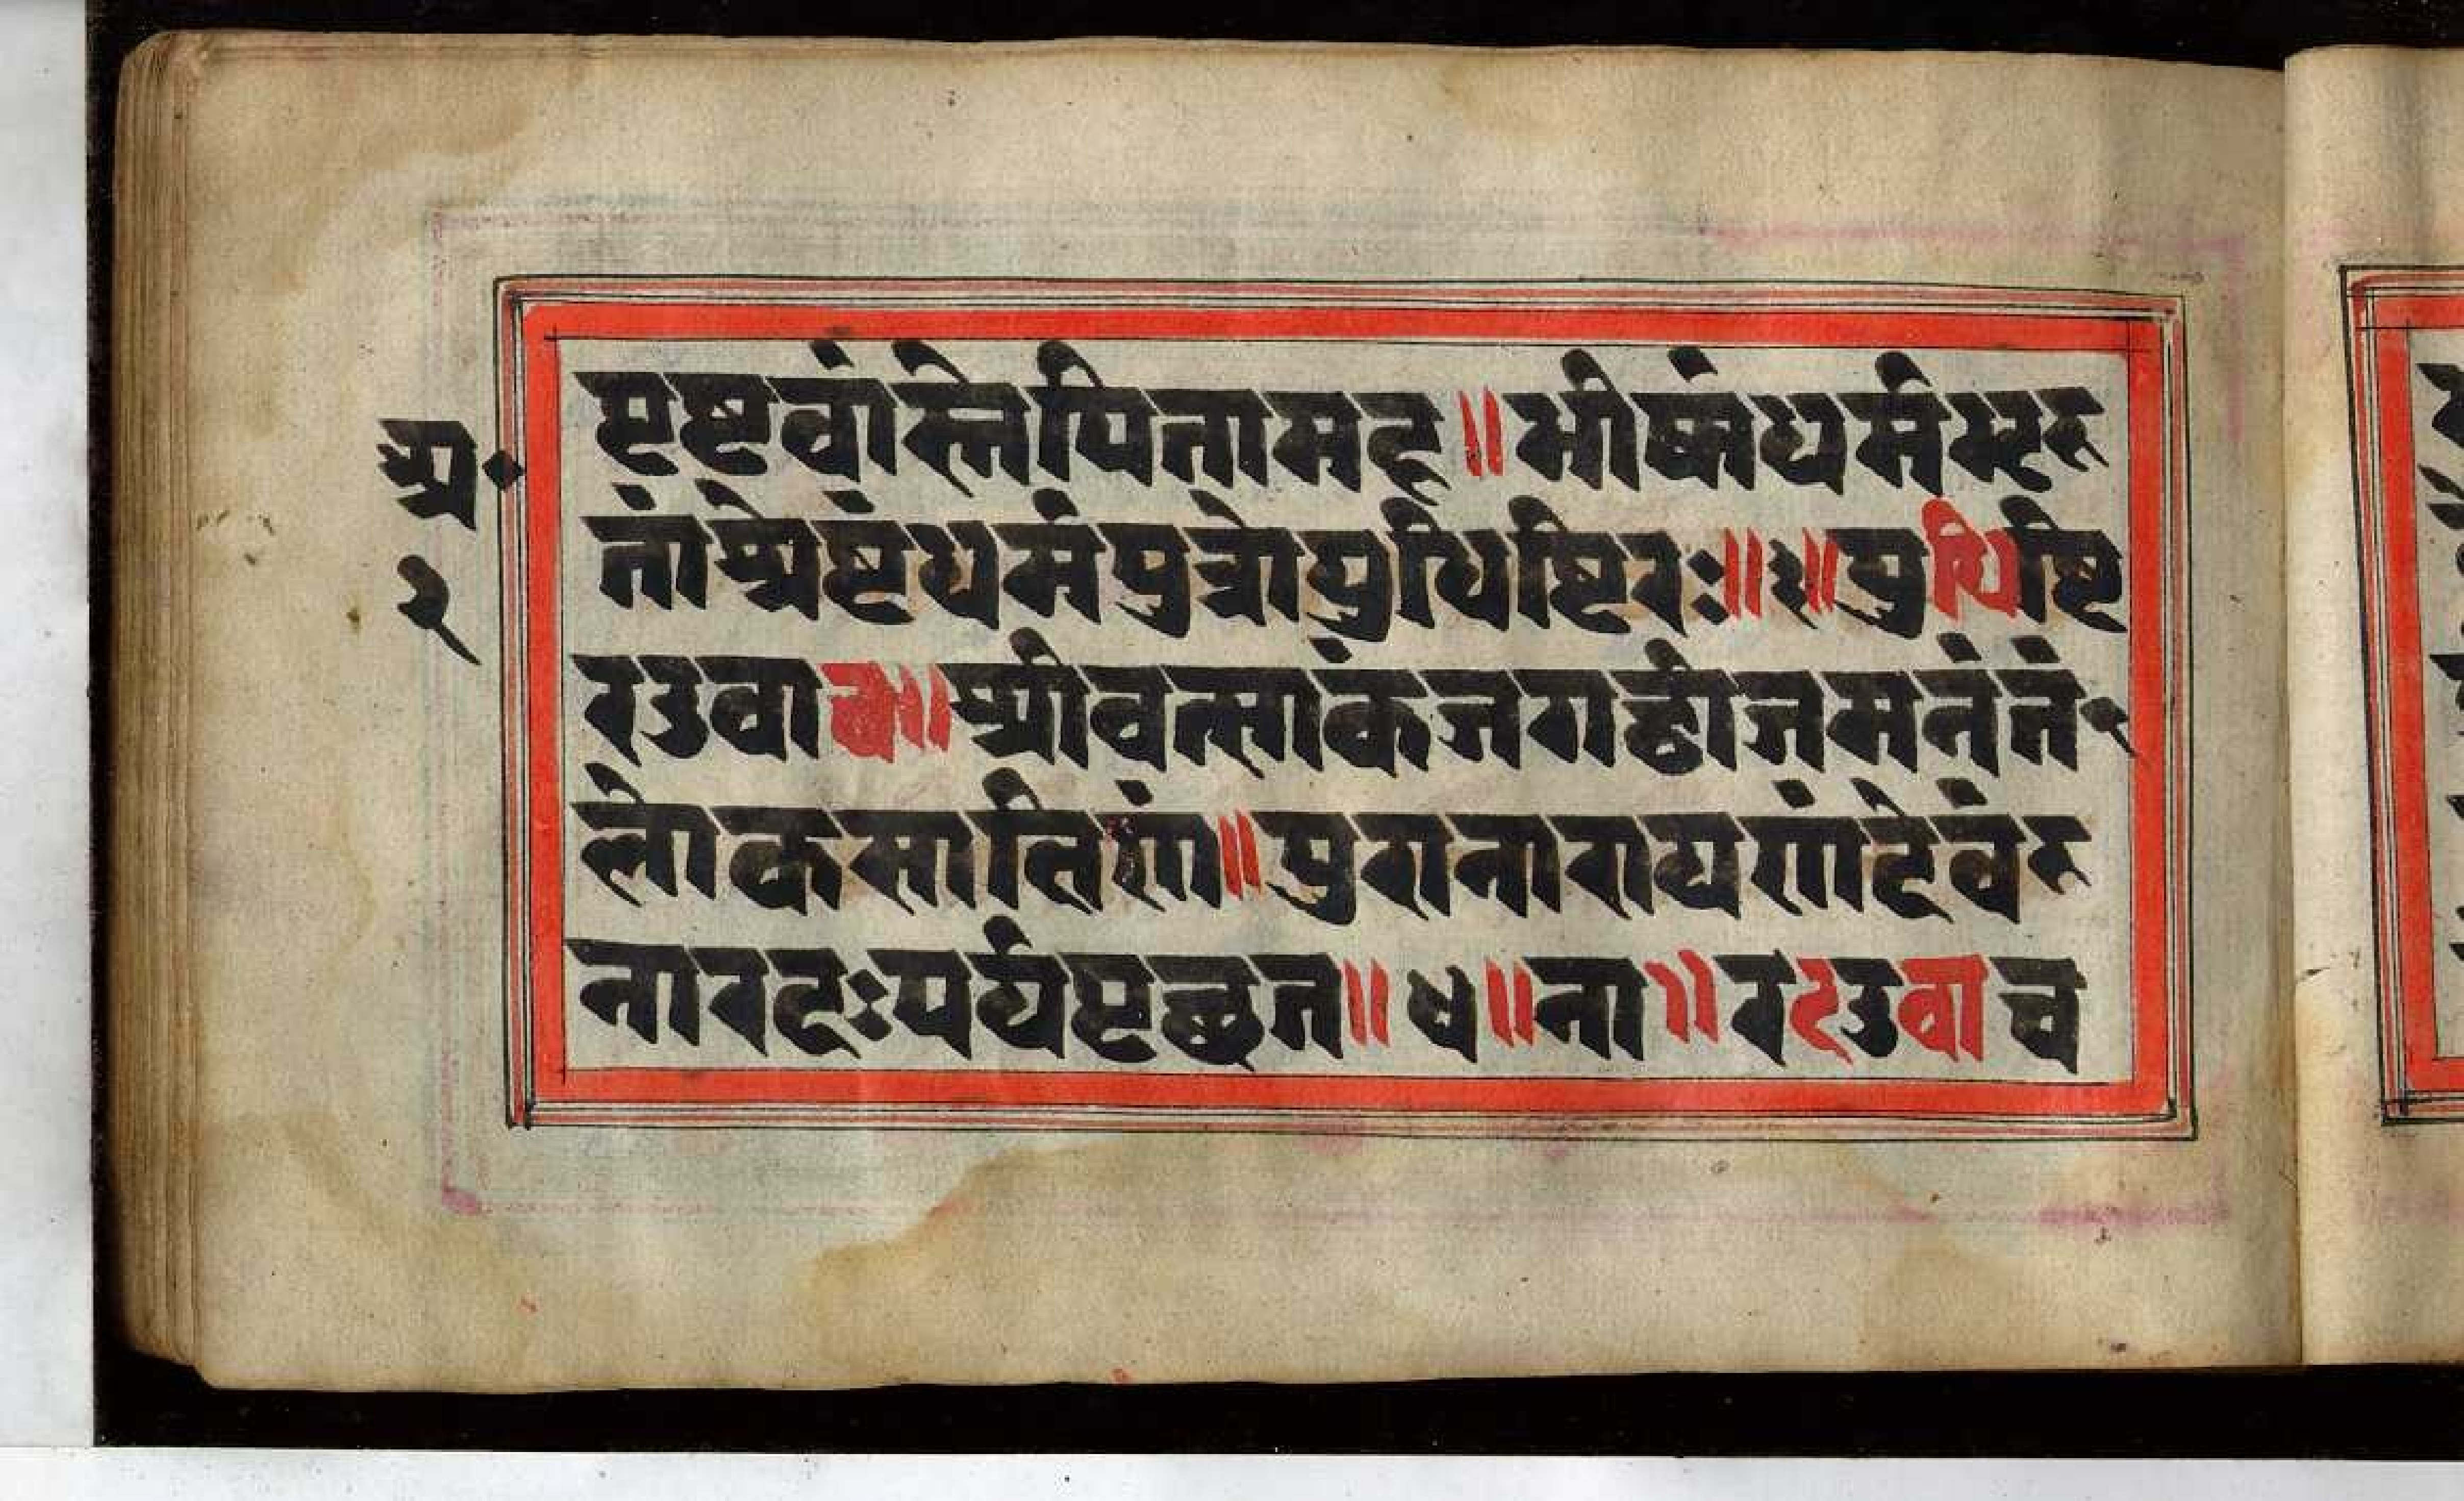 पृष्टवांस्तेपितामह॥भीष्मंधर्मभृर
तांश्रेष्टंधर्मपुत्रोयुधिष्टिरः॥३॥युधिष्टि
रउवाच॥श्रीवत्सांकंजगद्वीजमनंतं
लोकसातिणं॥पुरानारायणंदेवंर
नारदःपर्यपृछत॥४॥ना॥रदउवाच
२